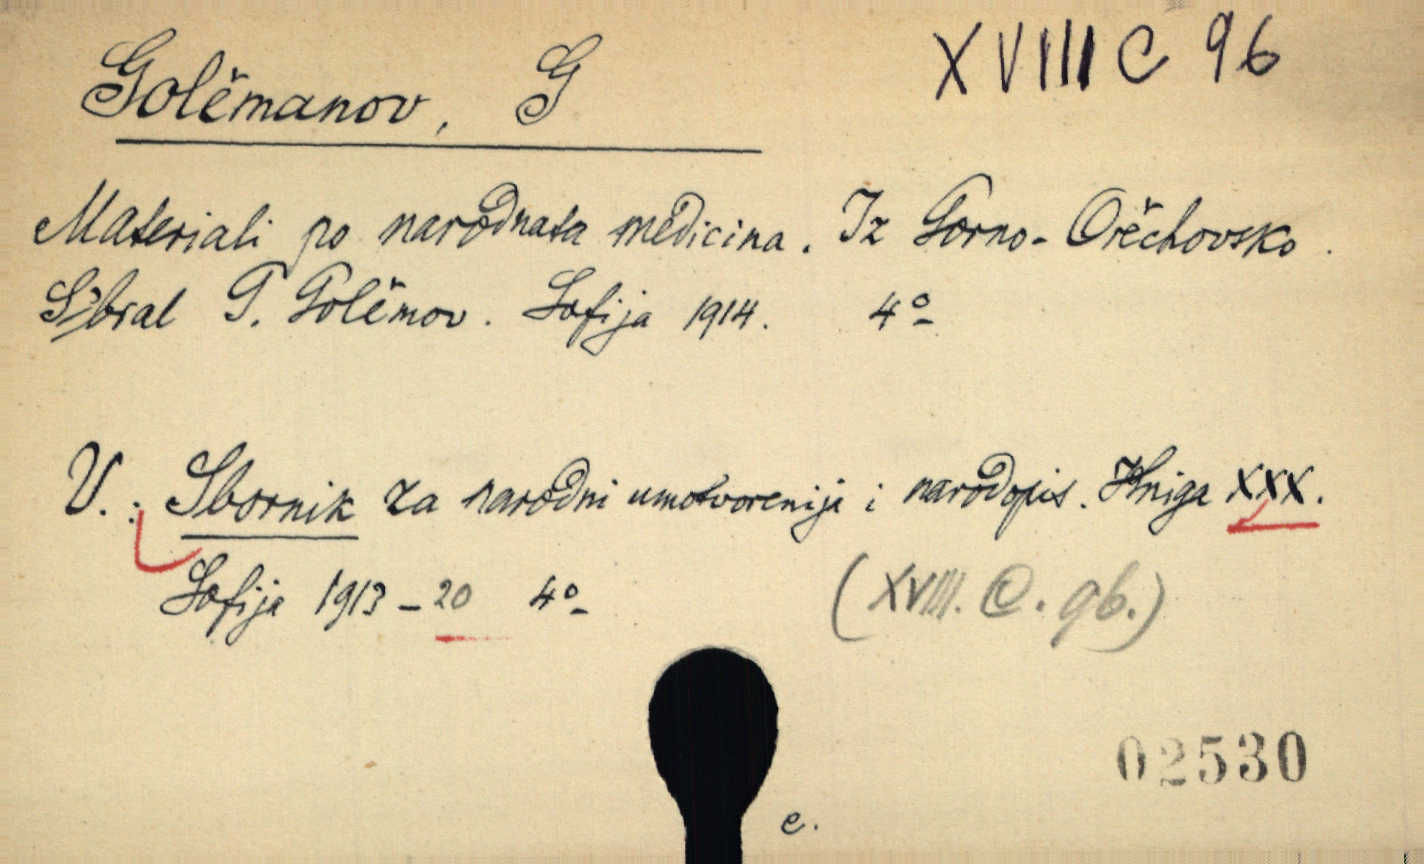 XVIII C 96
Golěmanov, G
Materiali po narodnata medicina. Iz Gorno-Orěchovsko.
Sъbral G. Golěmov. Sofija 1914. 4º
V.: Sbornik za narodni umotvorenija i narodopis. Kniga XXX.
Sofija 1913-20 4º
(XVIII. C. 96.)
02530
e.